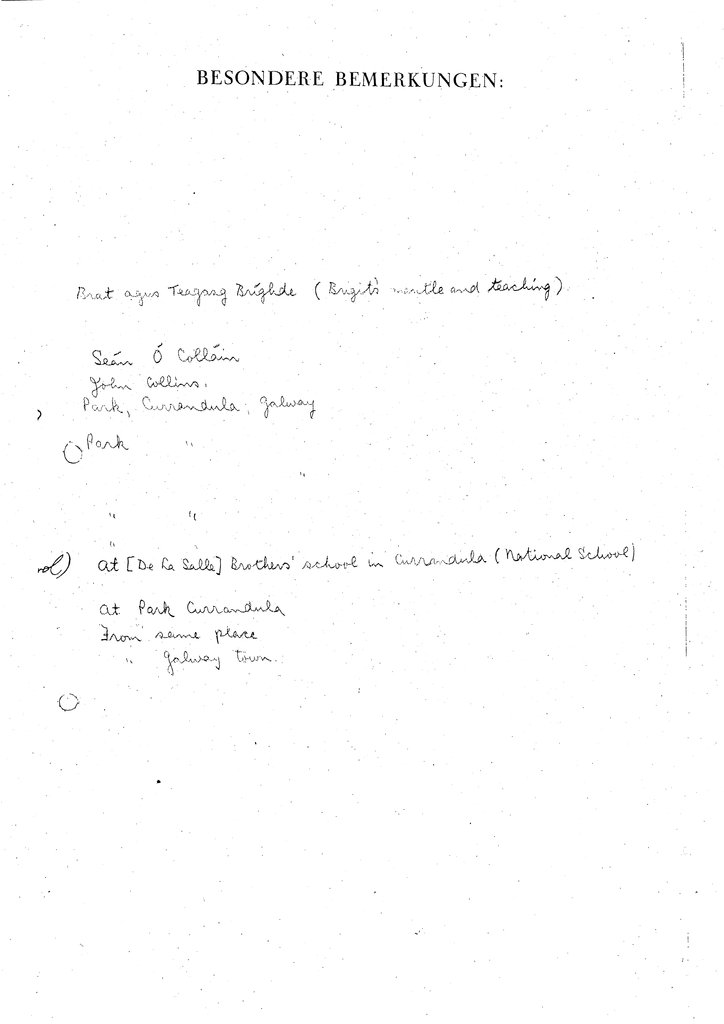 BESONDERE BEMERKUNGEN:
Brat agus Teagasg Brighde (Brigit's mantle and teaching)
Seán Ó Colláin
John Collins.
Park, Currandula, Galway
Park "
"
" "
"
at [De La Salle] Brothers' school in Currandula (National School)
at Park Currandula
From same place
" Galway town.